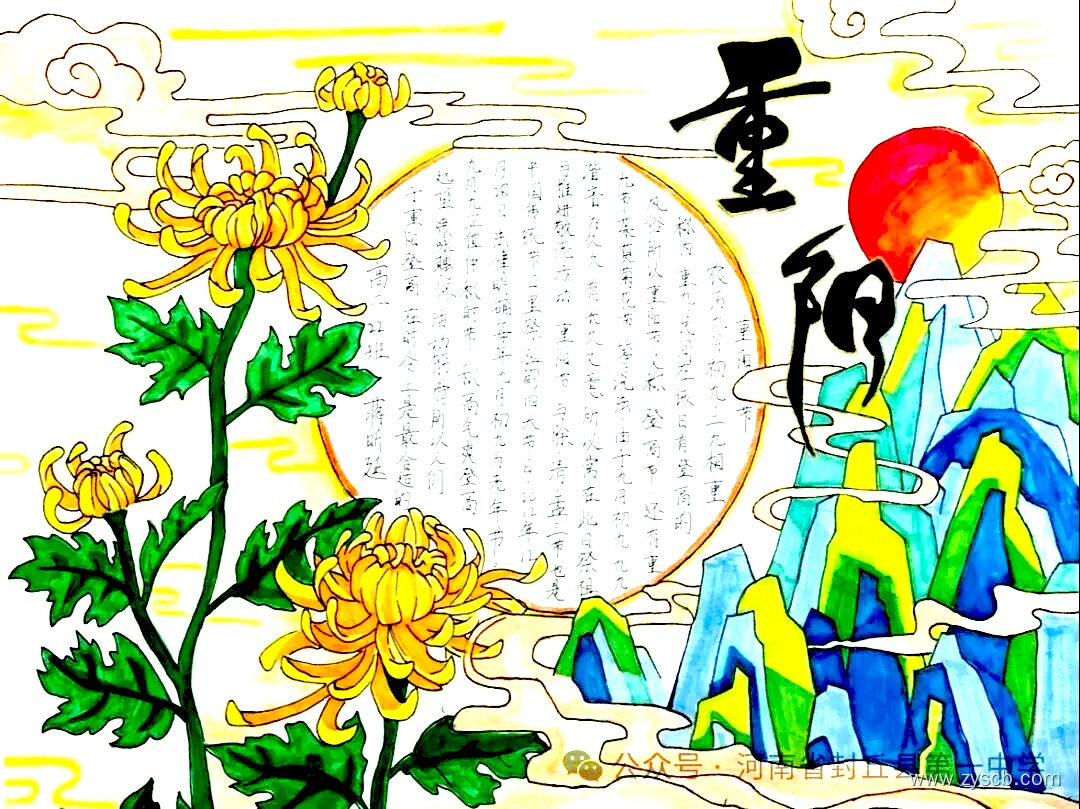 重阳
重阳节
农历九月初九二九相重
称为重九民间在该日有登高的
风俗所以重阳节又称登高节还有重
九节茱萸菊花节等说法由于九月初九九九
谐音为久久有长久之意所以常在此日祭祖
与推行敬老活动重阳节与除清盂三节也是
中国传统节日里祭祖的四大节日2012年12
月28日法律明确每年九月初九为老年节
九月九正值仲秋时节秋高气爽登高
远望 所以人们
于重阳登高在时令上是最合适的
高一22班
公众号·河南省封丘县第一中学
www.zyscb.com